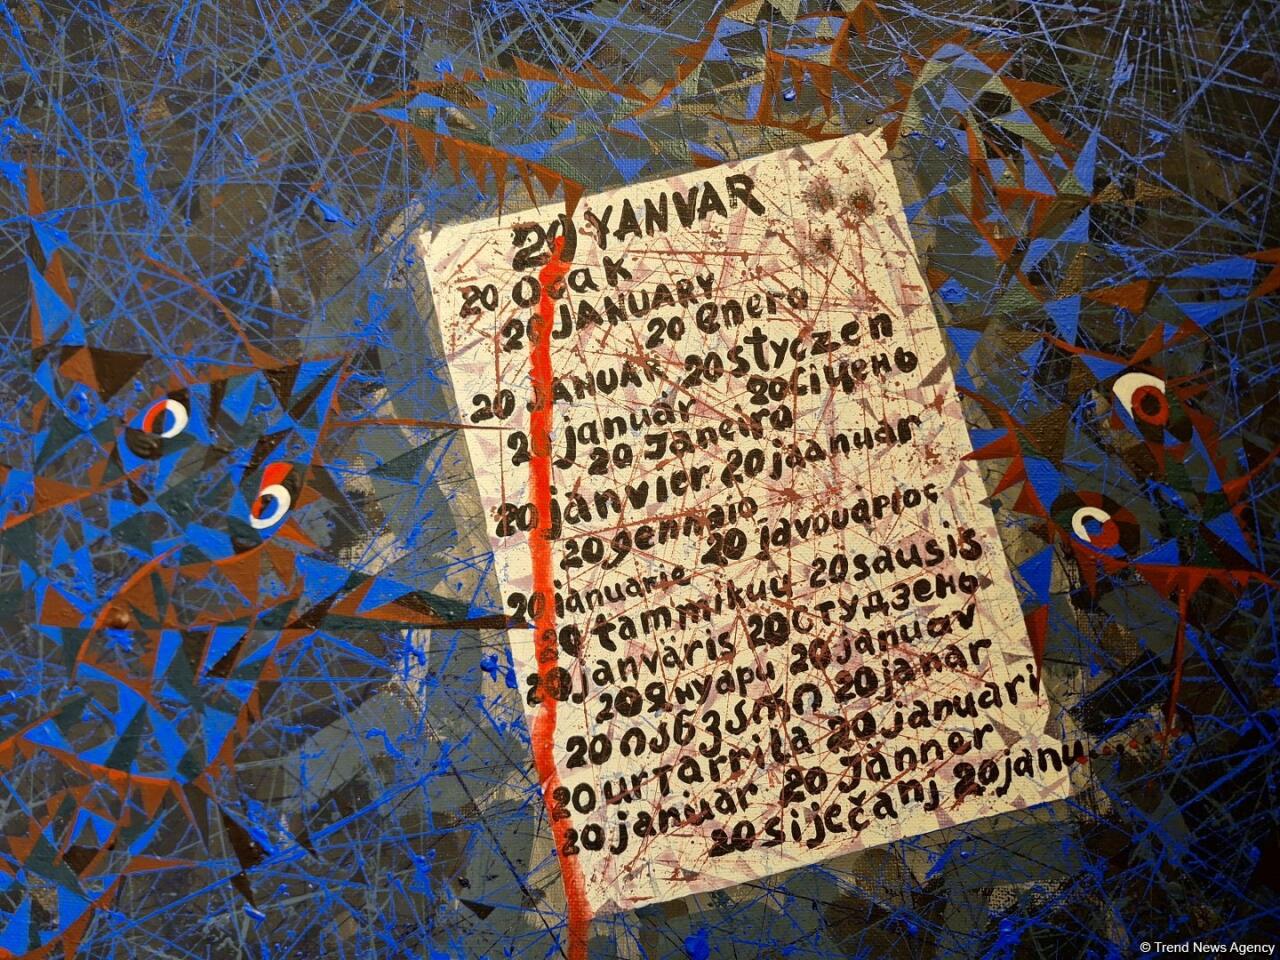 20 YANVAR
20 Ocak
20 JANUARY
20 enero
20 JANUAR 20 styczen
20 január 20 січень
20 Janeiro
20 janvier 20 jaanuar
20 gennaio
20 ιανουάριος
20 ianuarie
20 tammikuu 20 sausis
20 janvāris 20 студзень
20 януари 20 januar
20 იანვარი 20 janar
20 urtarrila 20 januari
20 januar 20 Jänner
20 siječanj 20 janu.....
© Trend News Agency